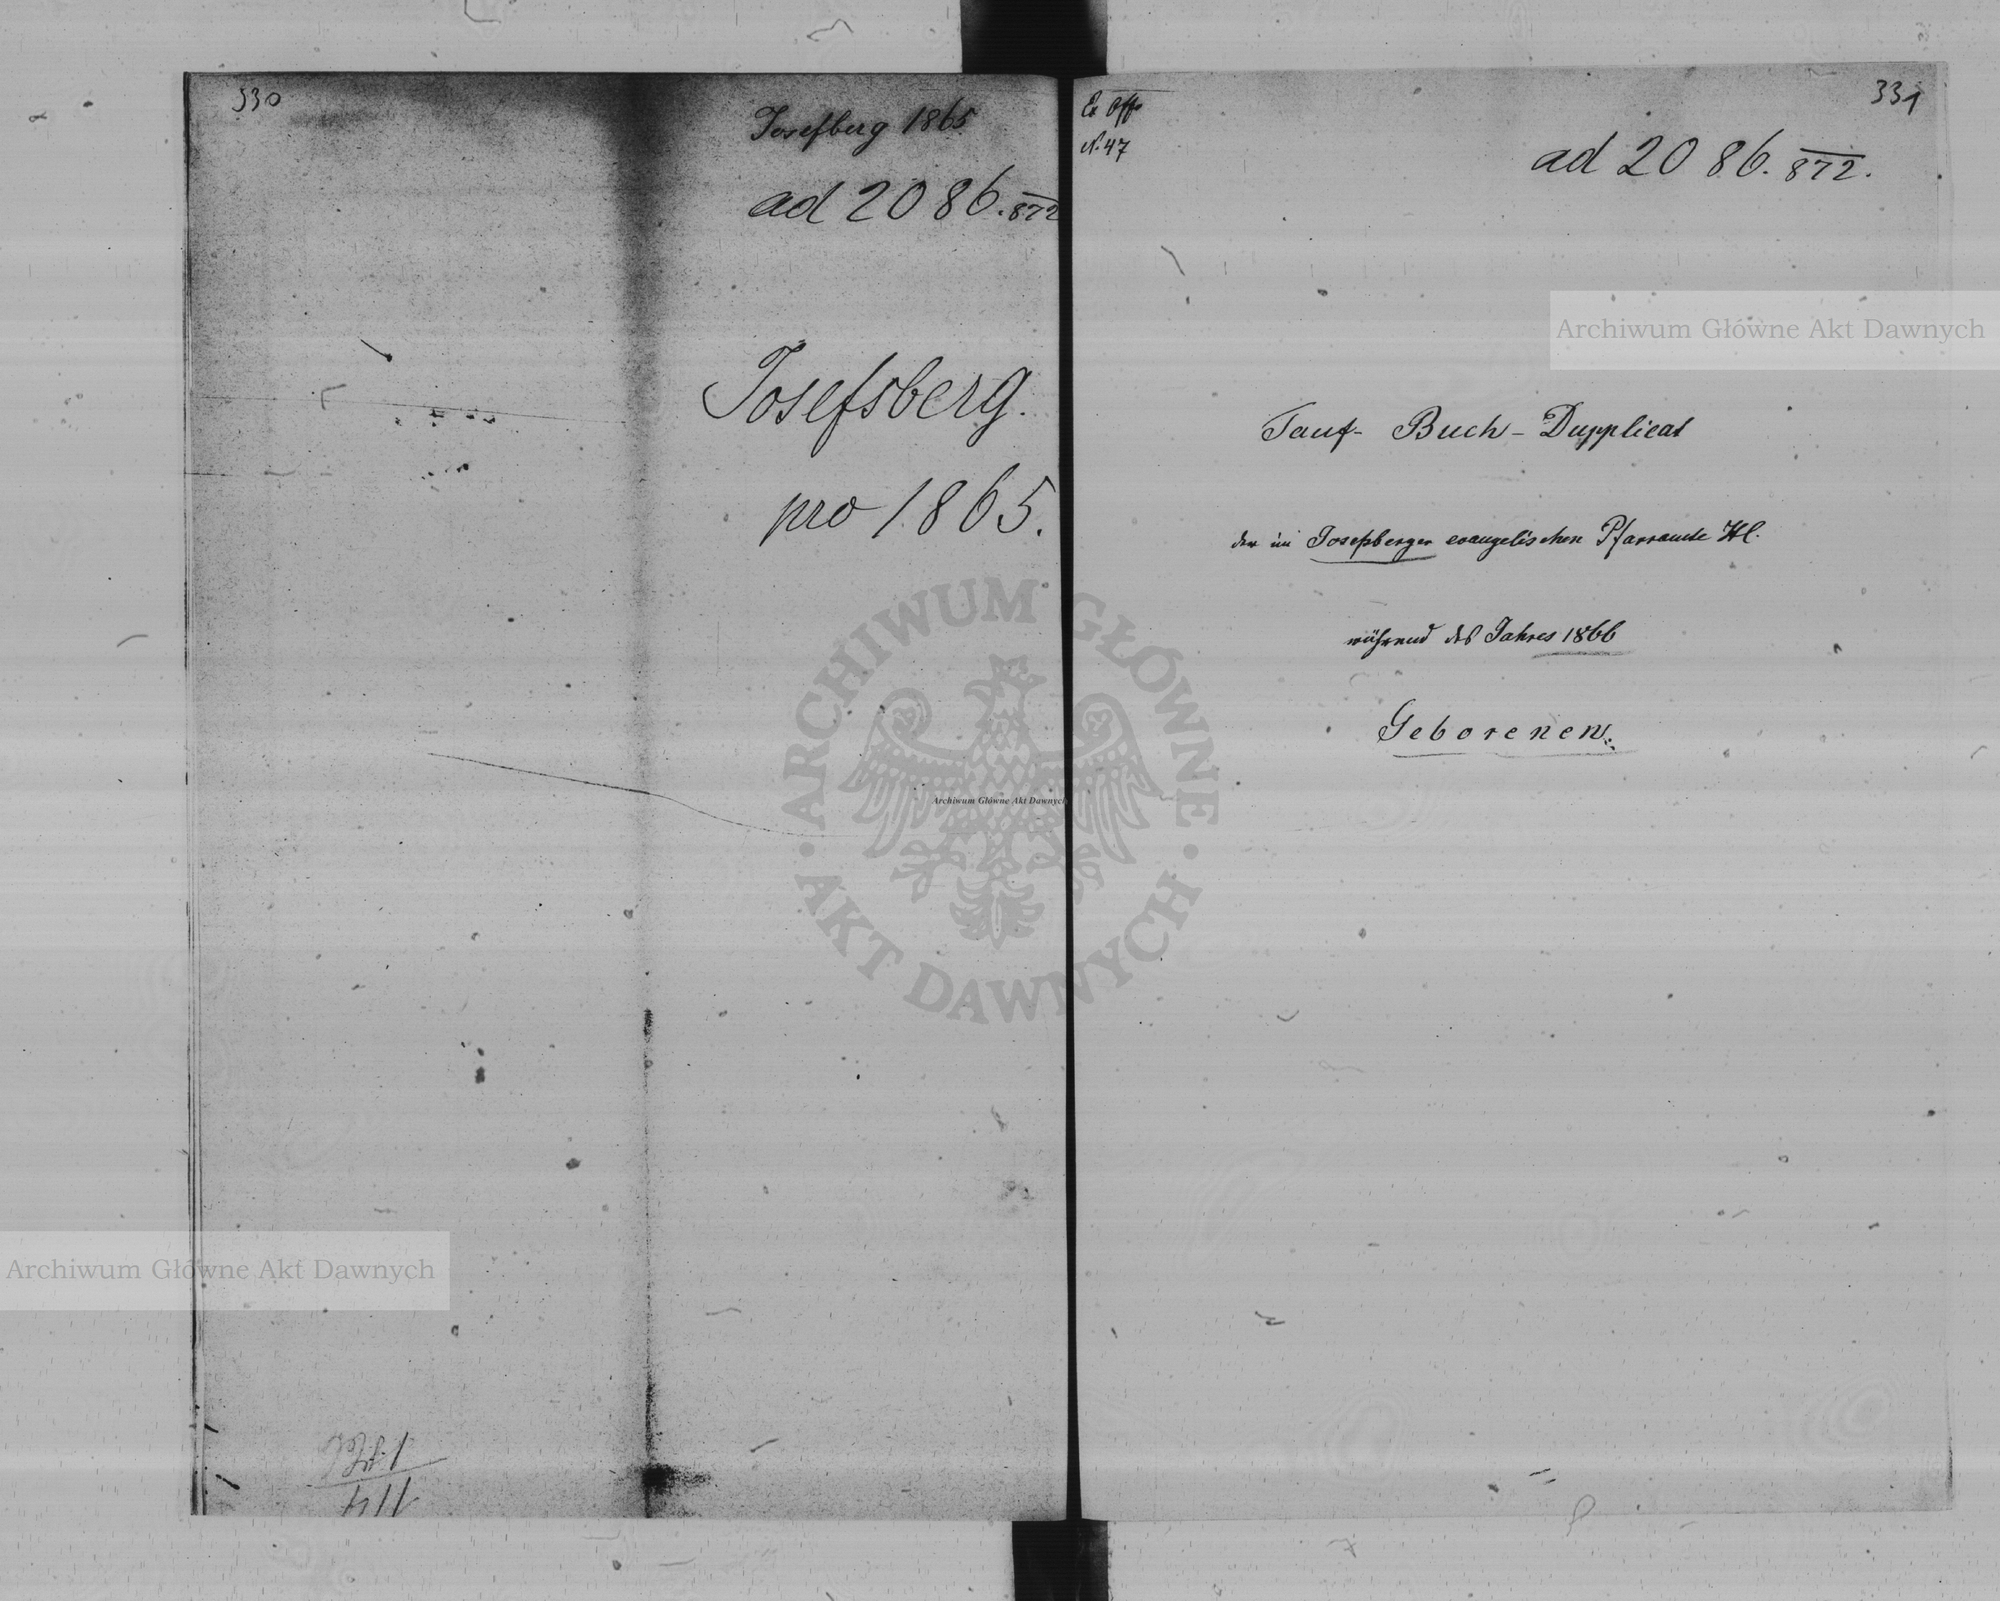 330
Josefberg 1865
ad 2086.872
Josefsberg.
pro 1865.
Ex Offo
N. 47
331
ad 2086.872.
Tauf- Buch- Dupplicat
der im Josephberger evangelischen Pfarramte
während des Jahres 1866
Geborenen.
Archiwum Główne Akt Dawnych
ARCHIWUM GŁÓWNE AKT DAWNYCH
Archiwum Główne Akt Dawnych
Archiwum Główne Akt Dawnych